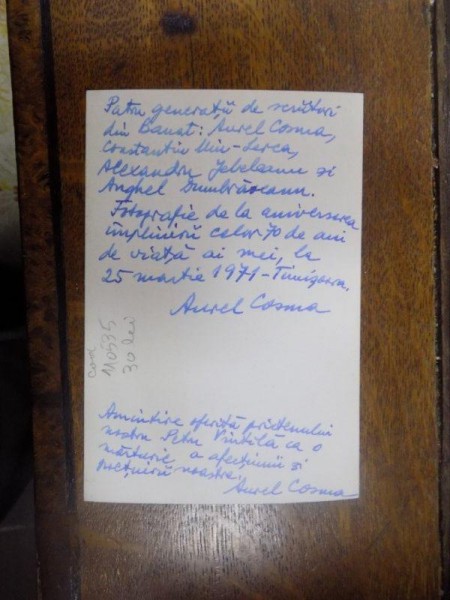 Patru generații de scriitori
din Banat: Aurel Cosma,
Constantin Miu-Lerca,
Alexandru Jebeleanu și
Anghel Dumbrăveanu.
Fotografie de la aniversarea
împlinirii celor 70 de ani
de viață ai mei, la
25 martie 1971 - Timișoara.
Aurel Cosma
cod
110535
30 lei
Amintire oferită prietenului
nostru Petru Vintilă ca o
mărturie a afecțiunii și
prețuirii noastre.
Aurel Cosma